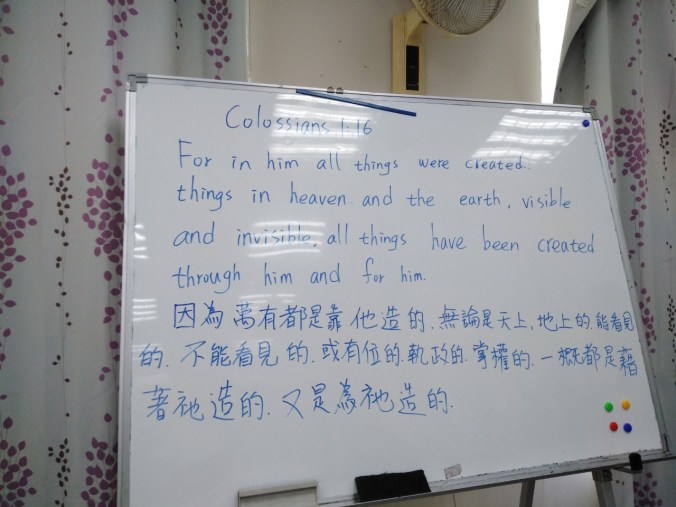 Colossians 1:16
For in him all things were created.
things in heaven and the earth, visible
and invisible, all things have been created
through him and for him.
因為萬有都是靠他造的.無論是天上,地上的.能看見
的.不能看見的.或有位的.執政的.掌權的.一概都是藉
著祂造的.又是為祂造的.